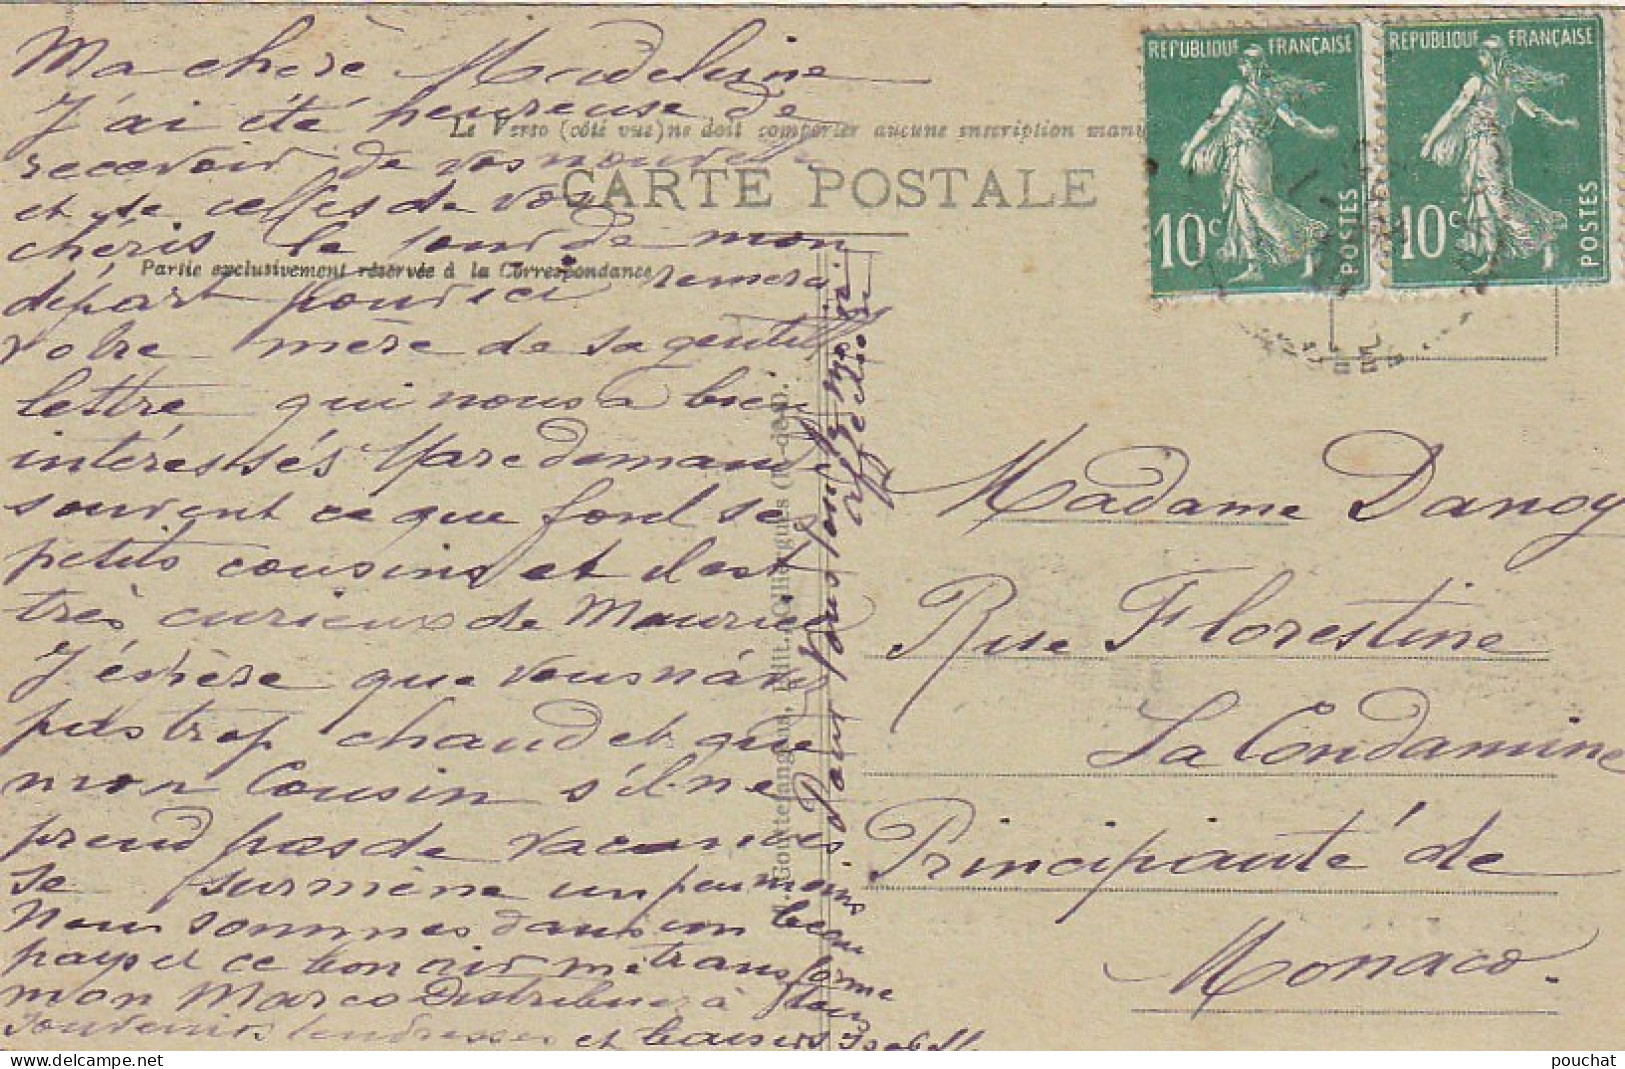 Ma chère Madeleine
J'ai été heureuse de
recevoir de vos nouvelles
et de celles de vos
chéris le jour de mon
départ pour ici remerci
votre mère de sa gentille
lettre qui nous a bien
intéressés Marc demande
souvent ce que font se
petits cousins et il est
très curieux de Maurice
J'éspère que vous n'avez
pas trop chaud et que
mon Cousin s'il ne
prend pas de vacances
se surmène un peu moins
Nous sommes dans un beau
pays et ce bon air me transforme
mon Marco Distribuez à tous
souvenirs tendresses et baisers Isabelle
Pour vous toute mon
affection
Le Verso (côté vue) ne doit comporter aucune inscription manu
CARTE POSTALE
Partie exclusivement réservée à la Correspondance
Gouttefangeas, Edit., Olliergues (P.-de-D.
REPUBLIQUE FRANÇAISE
10c
POSTES
REPUBLIQUE FRANÇAISE
10c
POSTES
Madame Danoy
Rue Florestine
La Condamine
Principauté de
Monaco.
www.delcampe.net
pouchat